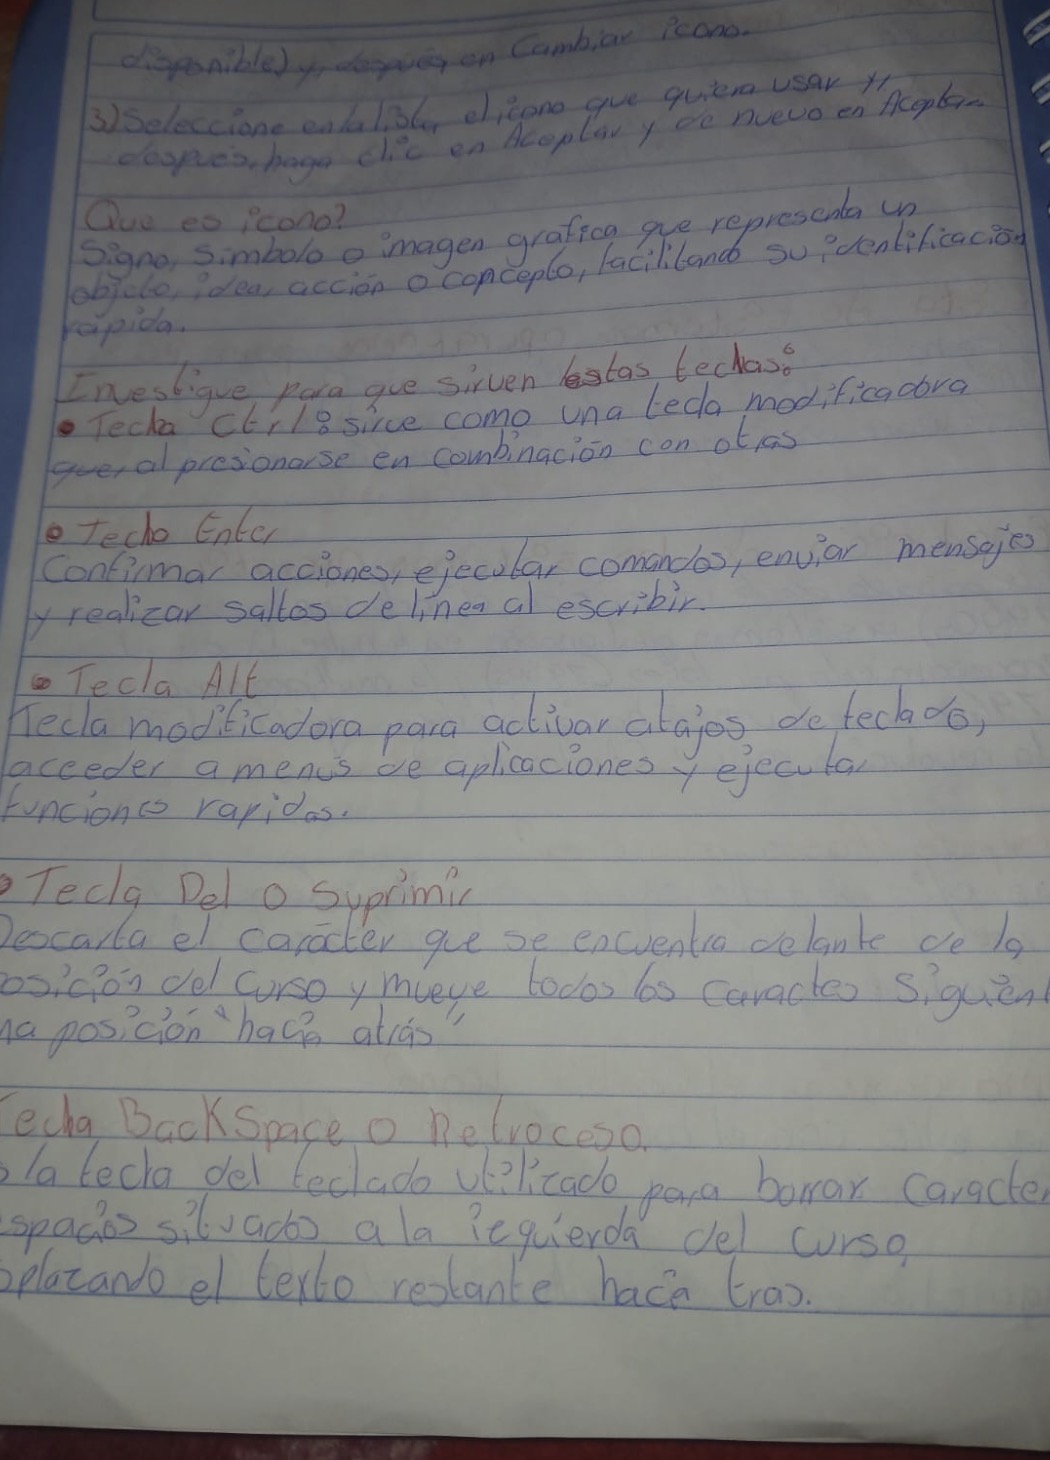 disponible) y, después en Cambiar icono.
3) Seleccione en la lista, el icono que quiera usar y,
después, haga clic en Aceptar y de nuevo en Aceptar.
Que es icono?
Signo, Simbolo o imagen grafica que representa un
objeto, idea, acción o concepto, facilitando su identificación
rápida.
Investigue para que sirven estas teclas:
• Tecla Ctrl: sirve como una tecla modificadora
que, al presionarse en combinación con otras
• Tecla Enter
Confirmar acciones, ejecutar comandos, enviar mensajes
y realizar saltos de linea al escribir.
• Tecla Alt
Tecla modificadora para activar atajos de teclado,
acceder a menús de aplicaciones y ejecutar
funciones rapidas.
• Tecla Del o Suprimir
Descarta el carácter que se encuentra delante de la
osición del curso y mueve todos los caractes siguient
na posición "hacia atrás"
Tecla BackSpace o Retroceso.
s la tecla del teclado utilizado para borrar caracter
espacios situados a la izquierda del curso,
splazando el texto restante hacia tras.